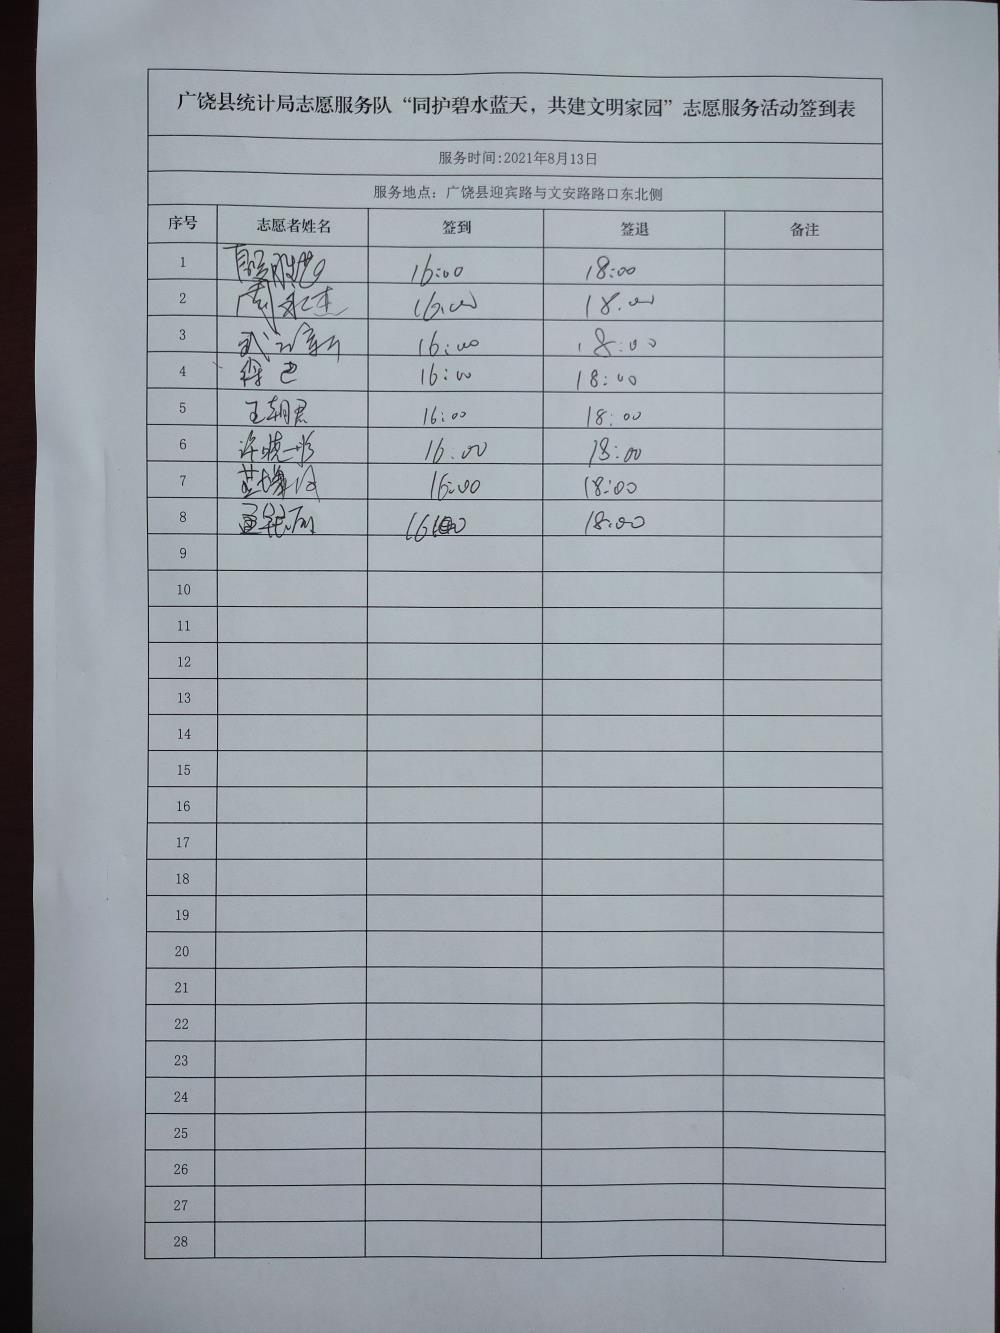 广饶县统计局志愿服务队“同护碧水蓝天，共建文明家园”志愿服务活动签到表
服务时间:2021年8月13日
服务地点：广饶县迎宾路与文安路路口东北侧
序号 志愿者姓名 签到 签退 备注
1 16:00 18:00
2 16:00 18:00
3 16:00 18:00
4 16:00 18:00
5 王朝君 16:00 18:00
6 许晓彤 16:00 18:00
7 16:00 18:00
8 18:00
9
10
11
12
13
14
15
16
17
18
19
20
21
22
23
24
25
26
27
28